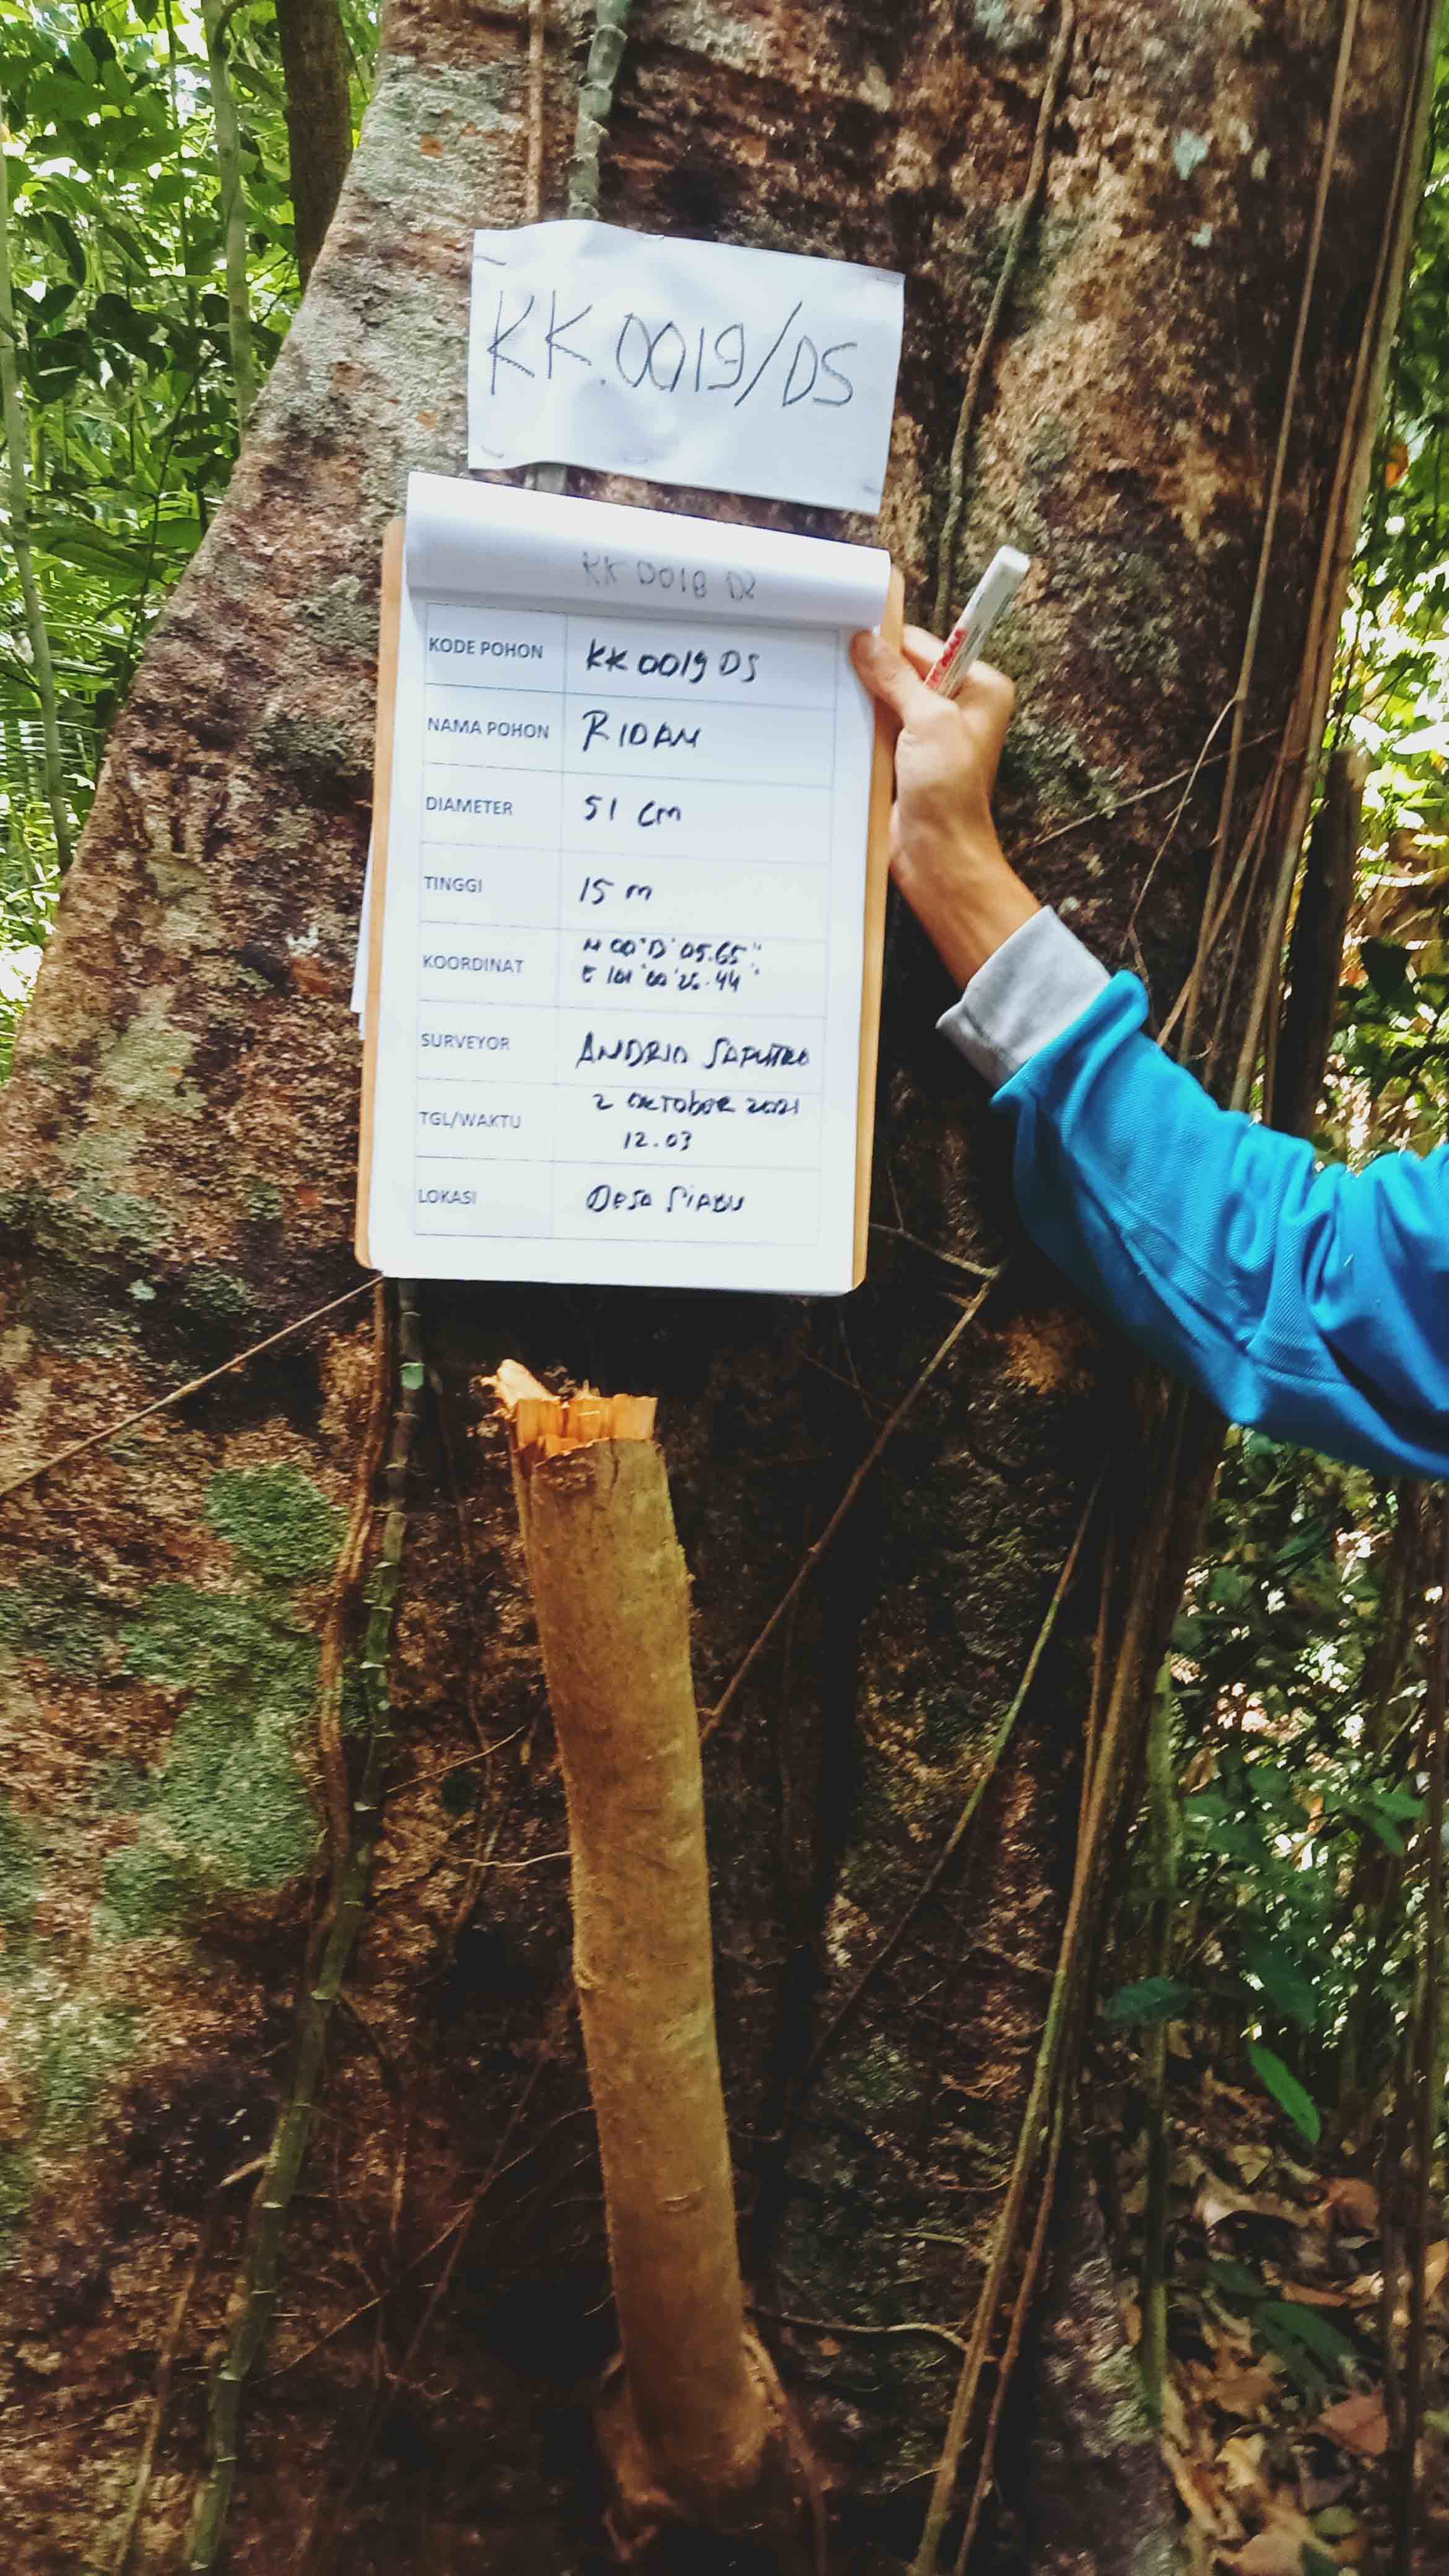 KK.0019/DS
KK 0018 DS
KODE POHON KK 0019 DS
NAMA POHON RIDAN
DIAMETER 51 cm
TINGGI 15 m
KOORDINAT N 00° 13' 05.65"
E 101° 00' 26.44"
SURVEYOR ANDRIO SAPUTRA
TGL/WAKTU 2 OKTOBER 2021
12.03
LOKASI Desa SIABU